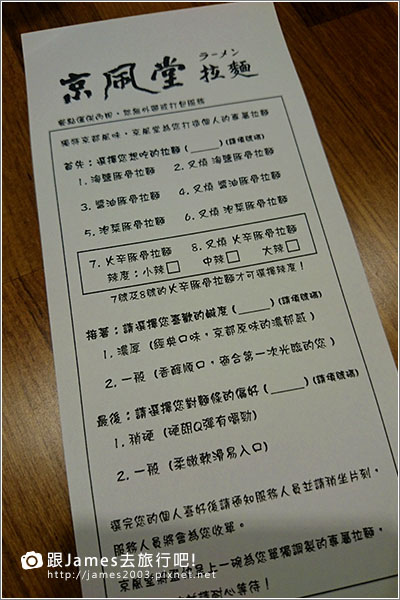 京風堂 ラーメン 拉麵
餐點僅供內用，恕無外帶或打包服務
獨特京都風味，京風堂為您打造個人的專屬拉麵
首先：選擇您想吃的拉麵(_____)(請填號碼)
1. 海鹽豚骨拉麵 2. 叉燒 海鹽豚骨拉麵
3. 醬油豚骨拉麵 4. 叉燒 醬油豚骨拉麵
5. 泡菜豚骨拉麵 6. 叉燒 泡菜豚骨拉麵
7. 火辛豚骨拉麵 8. 叉燒 火辛豚骨拉麵
辣度：小辣□ 中辣□ 大辣□
7號及8號的火辛豚骨拉麵才可選擇辣度！
接著：請選擇您喜歡的鹹度(_____)(請填號碼)
1. 濃厚 (經典口味，京都原味的濃郁感)
2. 一般 (香醇順口，適合第一次光臨的您)
最後：請選擇您對麵條的偏好(_____)(請填號碼)
1. 稍硬 (硬朗Q彈有嚼勁)
2. 一般 (柔嫩軟滑易入口)
選完您的個人喜好後請通知服務人員並請稍坐片刻，
服務人員將會為您收單。
京風堂 上一碗為您單獨調製的專屬拉麵，
跟James去旅行吧!
http://james2003.pixnet.net